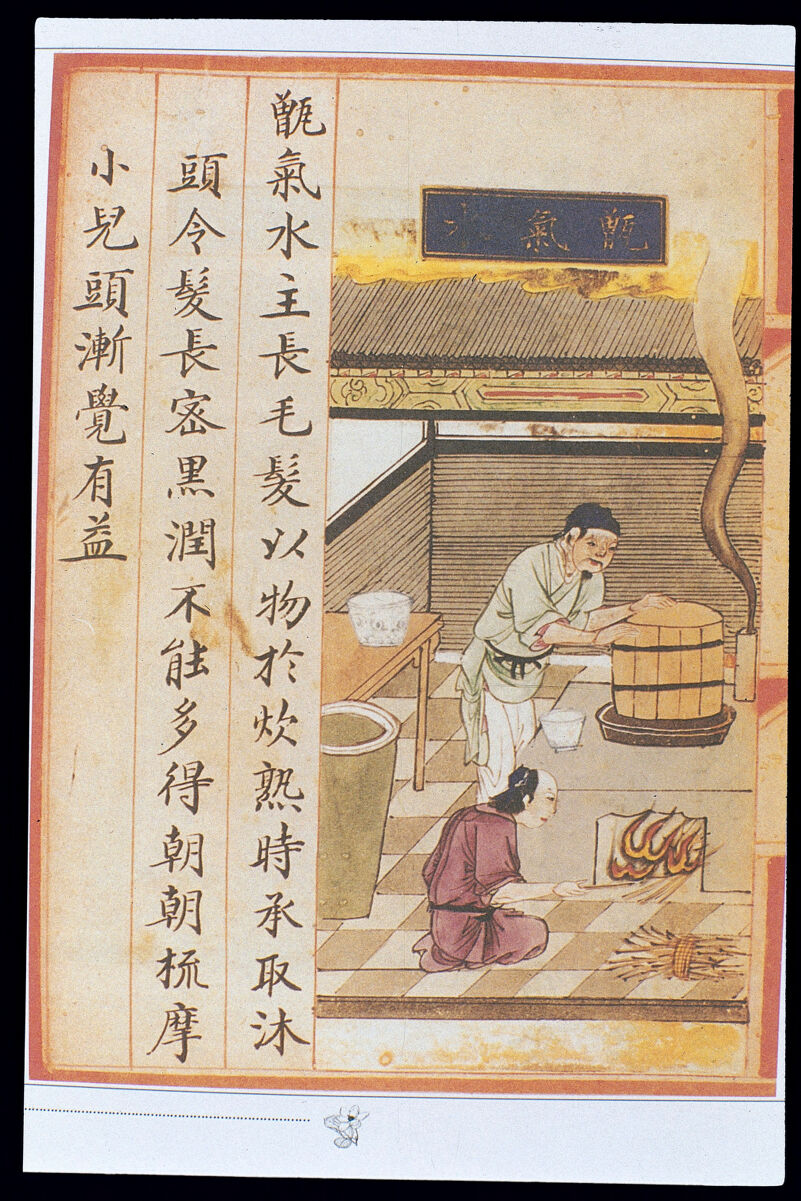 甑氣水
甑氣水主長毛髮以物於炊熟時承取沐
頭令髮長宻黒潤不能多得朝朝梳摩
小兒頭漸覺有益